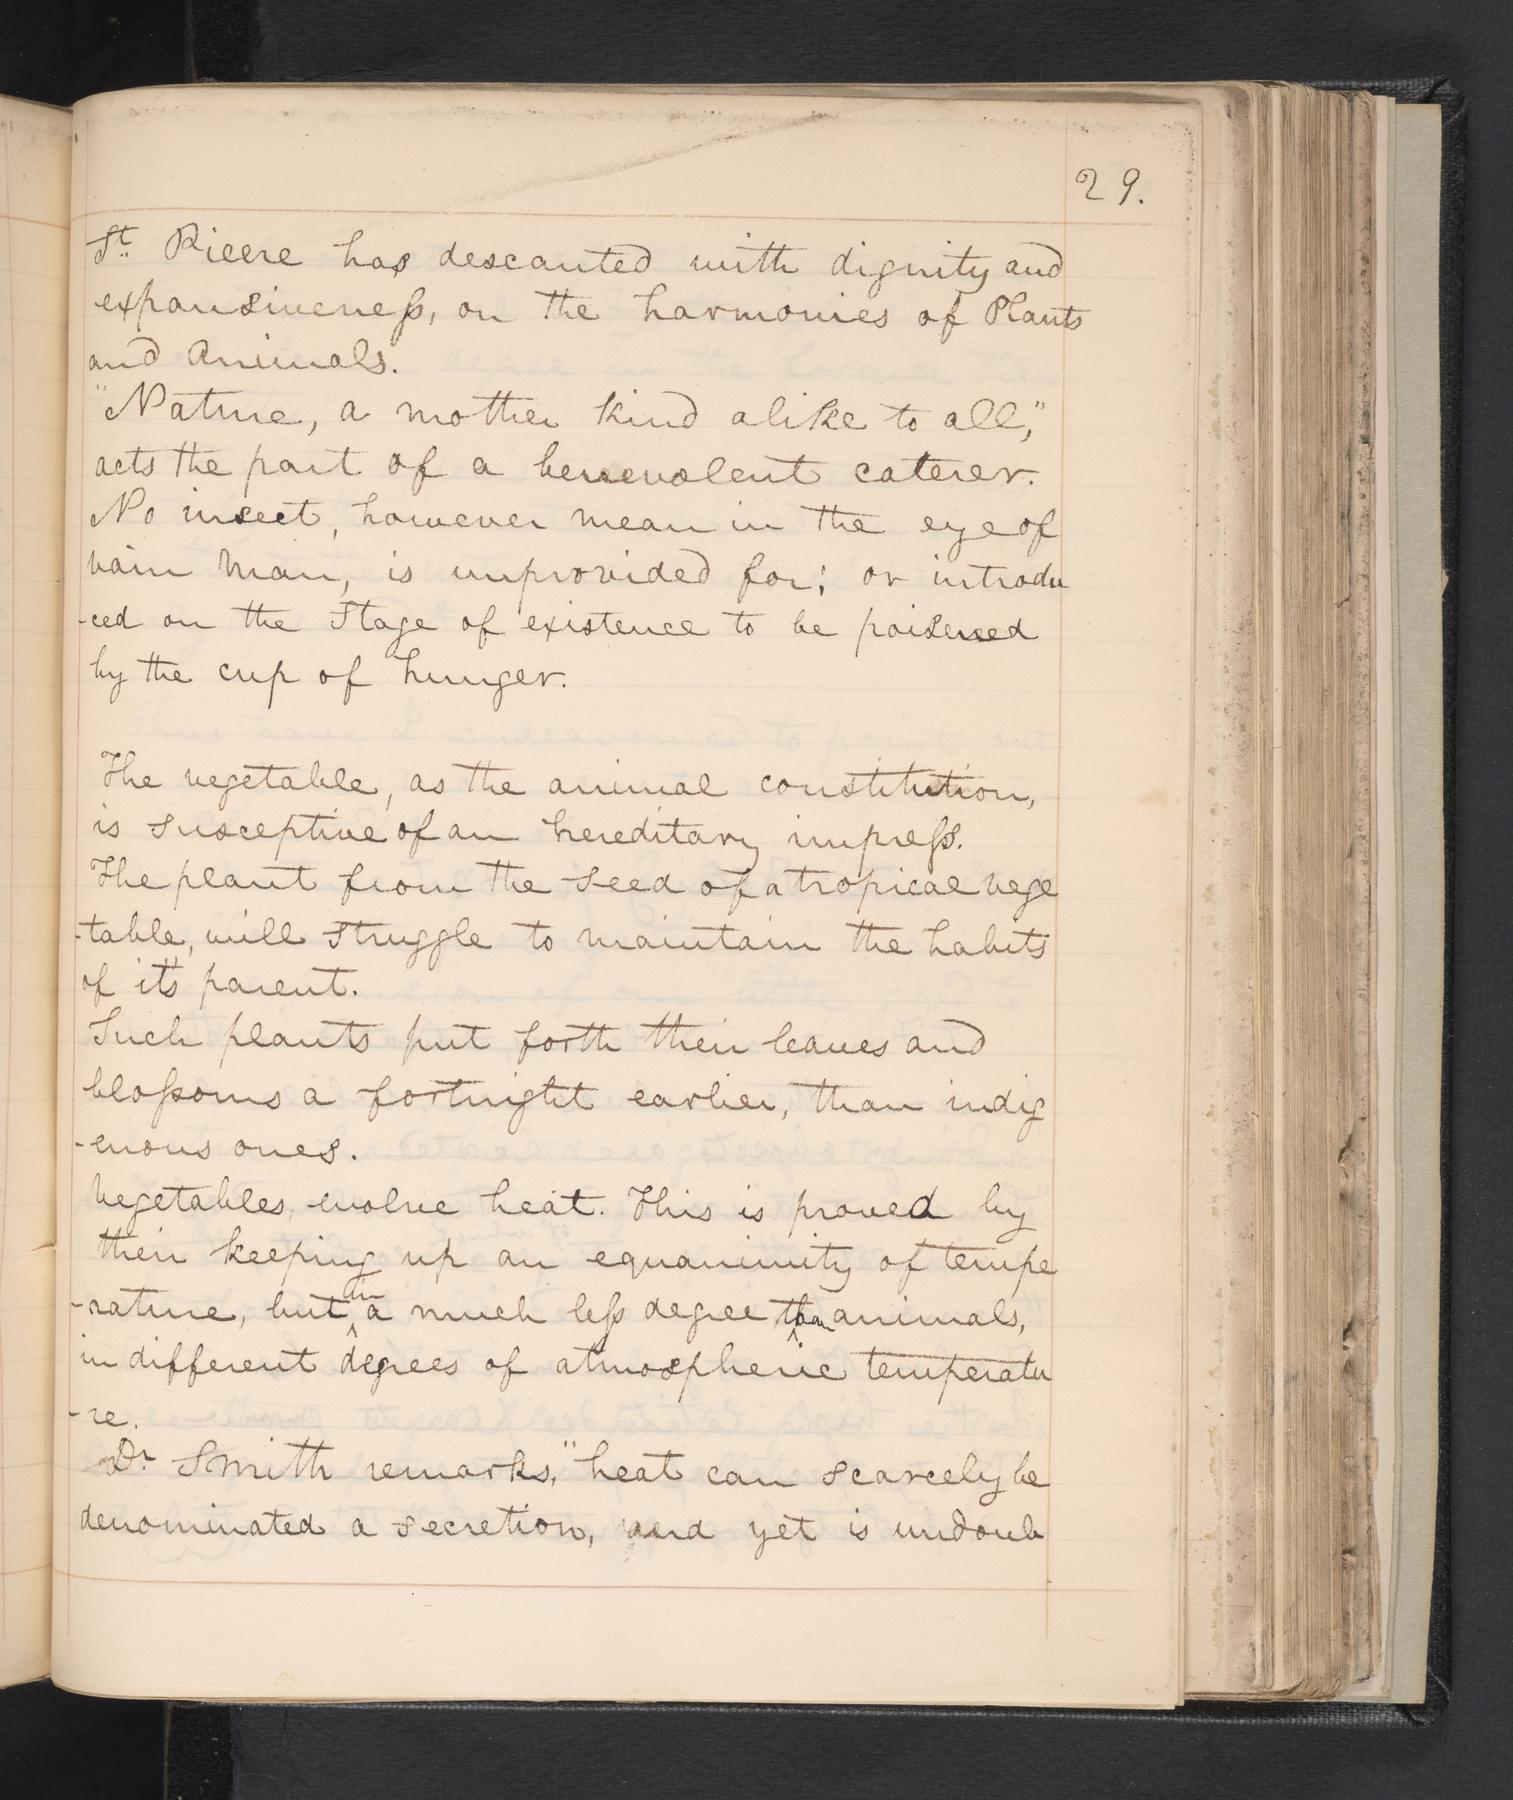 29.
St. Pieere has descanted with dignity and
expansiveness, on the harmonies of Plants
and Animals.
"Nature, a mother kind alike to all,"
acts the part of a benevolent caterer.
No insect, however mean in the eye of
vain man, is unprovided for; or introdu
-ced on the stage of existence to be poisened
by the cup of hunger.
The vegetable, as the animal constitution,
is susceptive of an hereditary impress.
The plant from the seed of a tropical vege
-table, will struggle to maintain the habits
of it's parent.
Such plants put forth their leaves and
blossoms a fortnight earlier, than indig
-enous ones.
Vegetables, evolve heat. This is proved by
their keeping up an equanimity of tempe
-rature, but in a much less degree than animals,
in different degrees of atmospheric temperatu
-re.
Dr Smith remarks, "heat can scarcely be
denominated a secretion, and yet is undoub